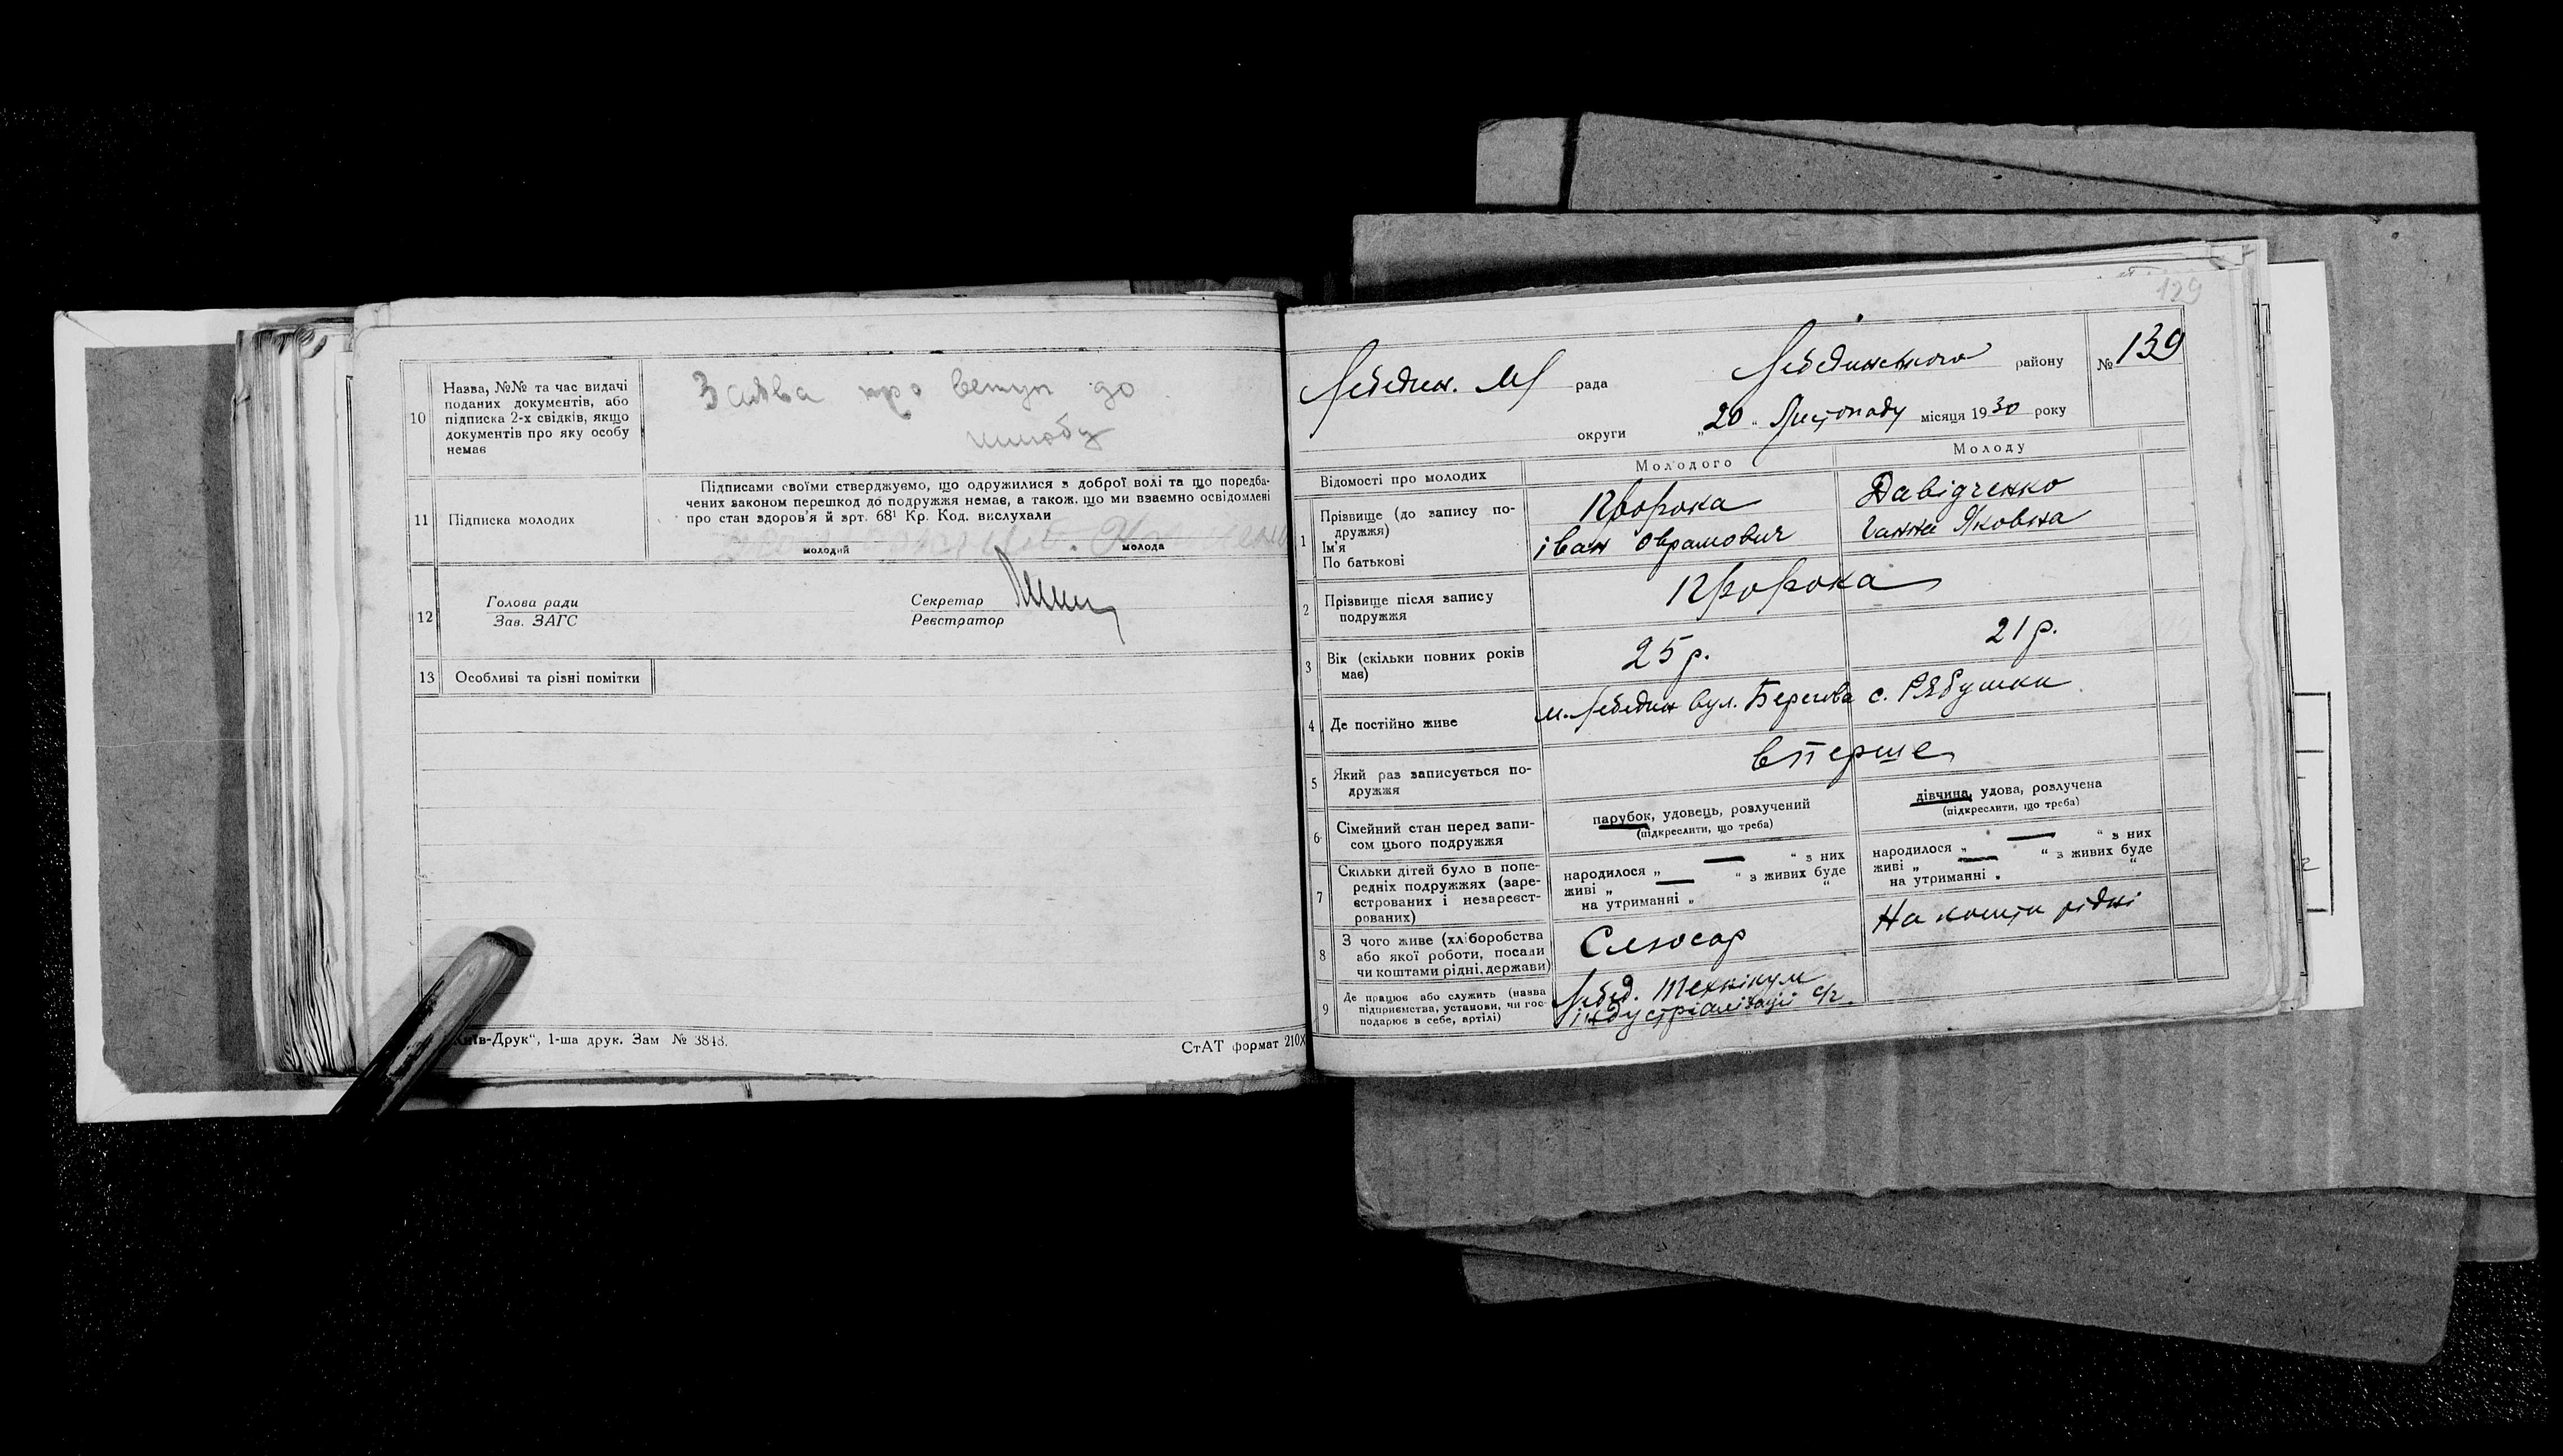 10
Назва, №№ та час видачі
поданих документів, або
підписка 2-х свідків, якщо
документів про яку особу
немає
Заява про вступ до
шлюбу
11
Підписка молодих
Підписами своїми стверджуємо, що одружилися з доброї волі та що поредба-
чених законом перешкод до подружжя немає, а також, що ми взаємно освідомлені
про стан здоров'я й врт. 68¹ Кр. Код. вислухали
молодий
молода
12
Голова ради
Зав. ЗАГС
Секретар
Реєстратор
13
Особливі та різні помітки
Київ-Друк“, 1-ша друк. Зам № 3848.
СтАТ формат 210Х
129
Лебедин. М рада
Лебединського району
№ 139
округи
„20“ Листопаду місяця 1930 року
Відомості про молодих
Молодого
Молоду
1
Прізвище (до запису по-
дружжя)
Ім'я
По батькові
Пророка
іван Оврамович
Давідченко
Ганна Яковна
2
Прізвище після запису
подружжя
Пророка
3
Вік (скільки повних років
має)
25 р.
21 р.
4
Де постійно живе
м. Лебедин вул. Берегова
с. Рябушки
5
Який раз записується по-
дружжя
вперше
6
Сімейний стан перед запи-
сом цього подружжя
парубок, удовець, розлучений
(підкреслити, що треба)
дівчина, удова, розлучена
(підкреслити, що треба)
7
Скільки дітей було в попе-
редніх подружжях (заре-
єстрованих і незареєст-
рованих)
народилося „ — “ з них
живі „ — “ з живих буде
на утриманні „ “
народилося „ — “ з них
живі „ — “ з живих буде
на утриманні „ “
8
З чого живе (хліборобства
або якої роботи, посади
чи коштами рідні, держави)
Слюсар
На кошти рідні
9
Де працює або служить (назва
підприємства, установи, чи гос-
подарює в себе, артілі)
Лебед. Технікум
індустріалізації с/г.